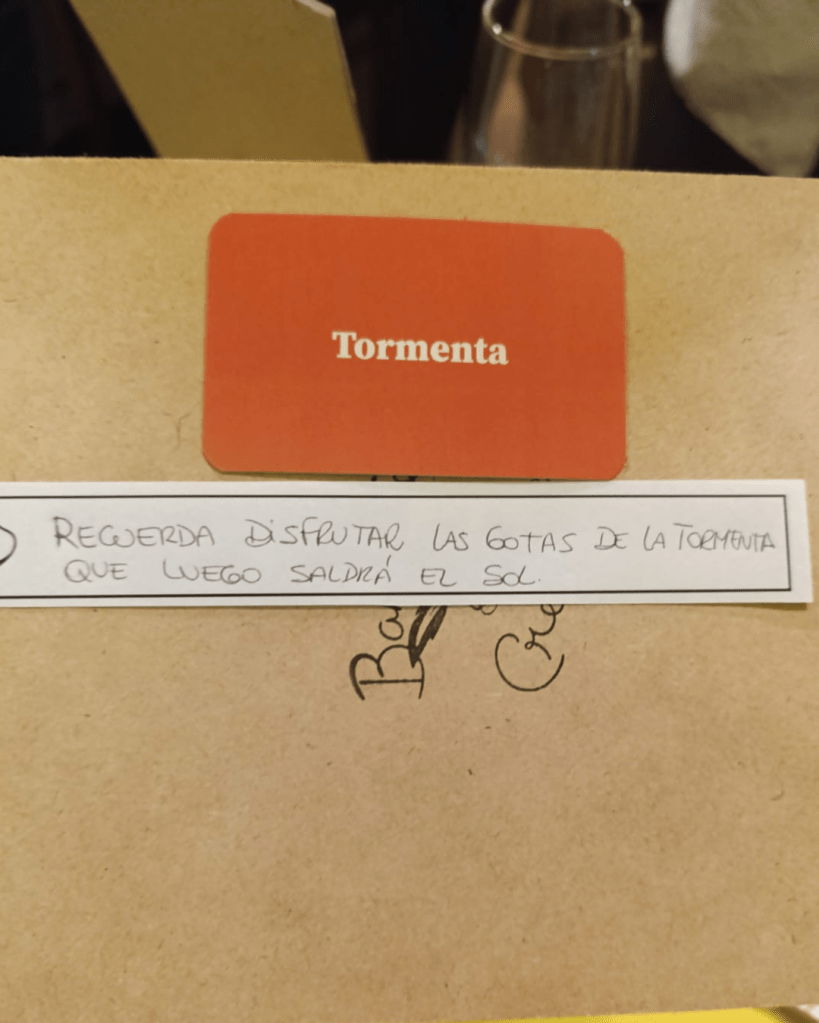 Tormenta
RECUERDA DISFRUTAR LAS GOTAS DE LA TORMENTA
QUE LUEGO SALDRÁ EL SOL.